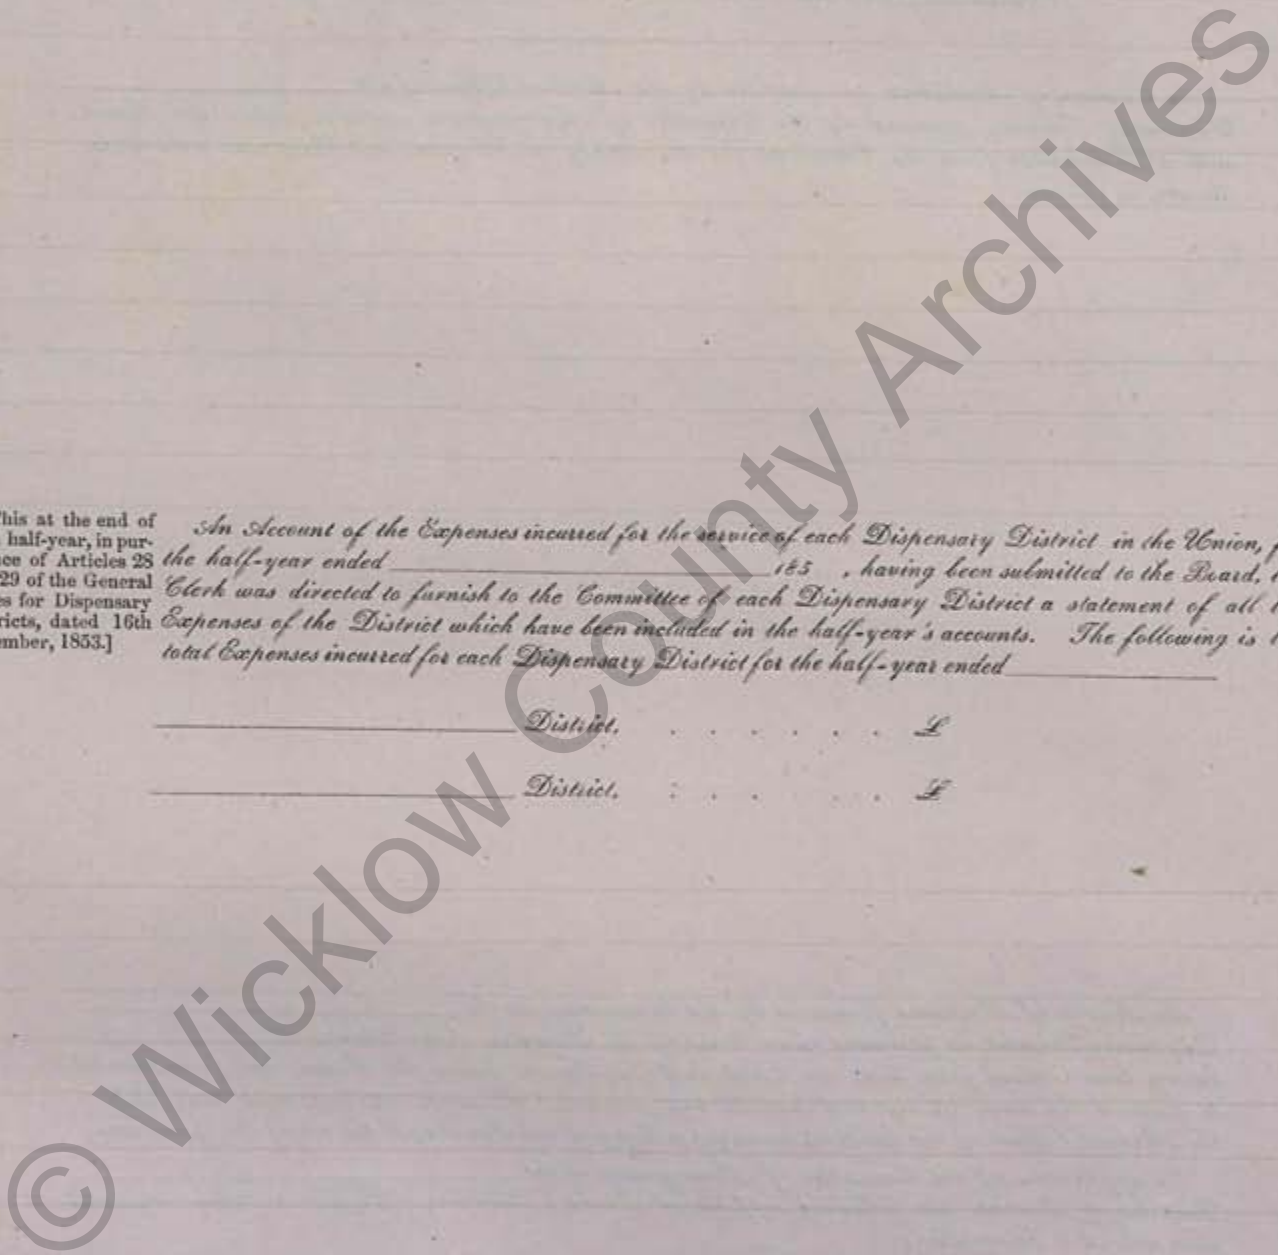 his at the end of
half-year, in pur-
ce of Articles 28
29 of the General
s for Dispensary
ricts, dated 16th
mber, 1853.]
An Account of the Expenses incurred for the service of each Dispensary District in the Union, f
the half-year ended 185 , having been submitted to the Board, t
Clerk was directed to furnish to the Committee of each Dispensary District a statement of all t
Expenses of the District which have been included in the half-year's accounts. The following is t
total Expenses incurred for each Dispensary District for the half-year ended
District. . . . . . . £
District. : . . . . . £
© Wicklow County Archives